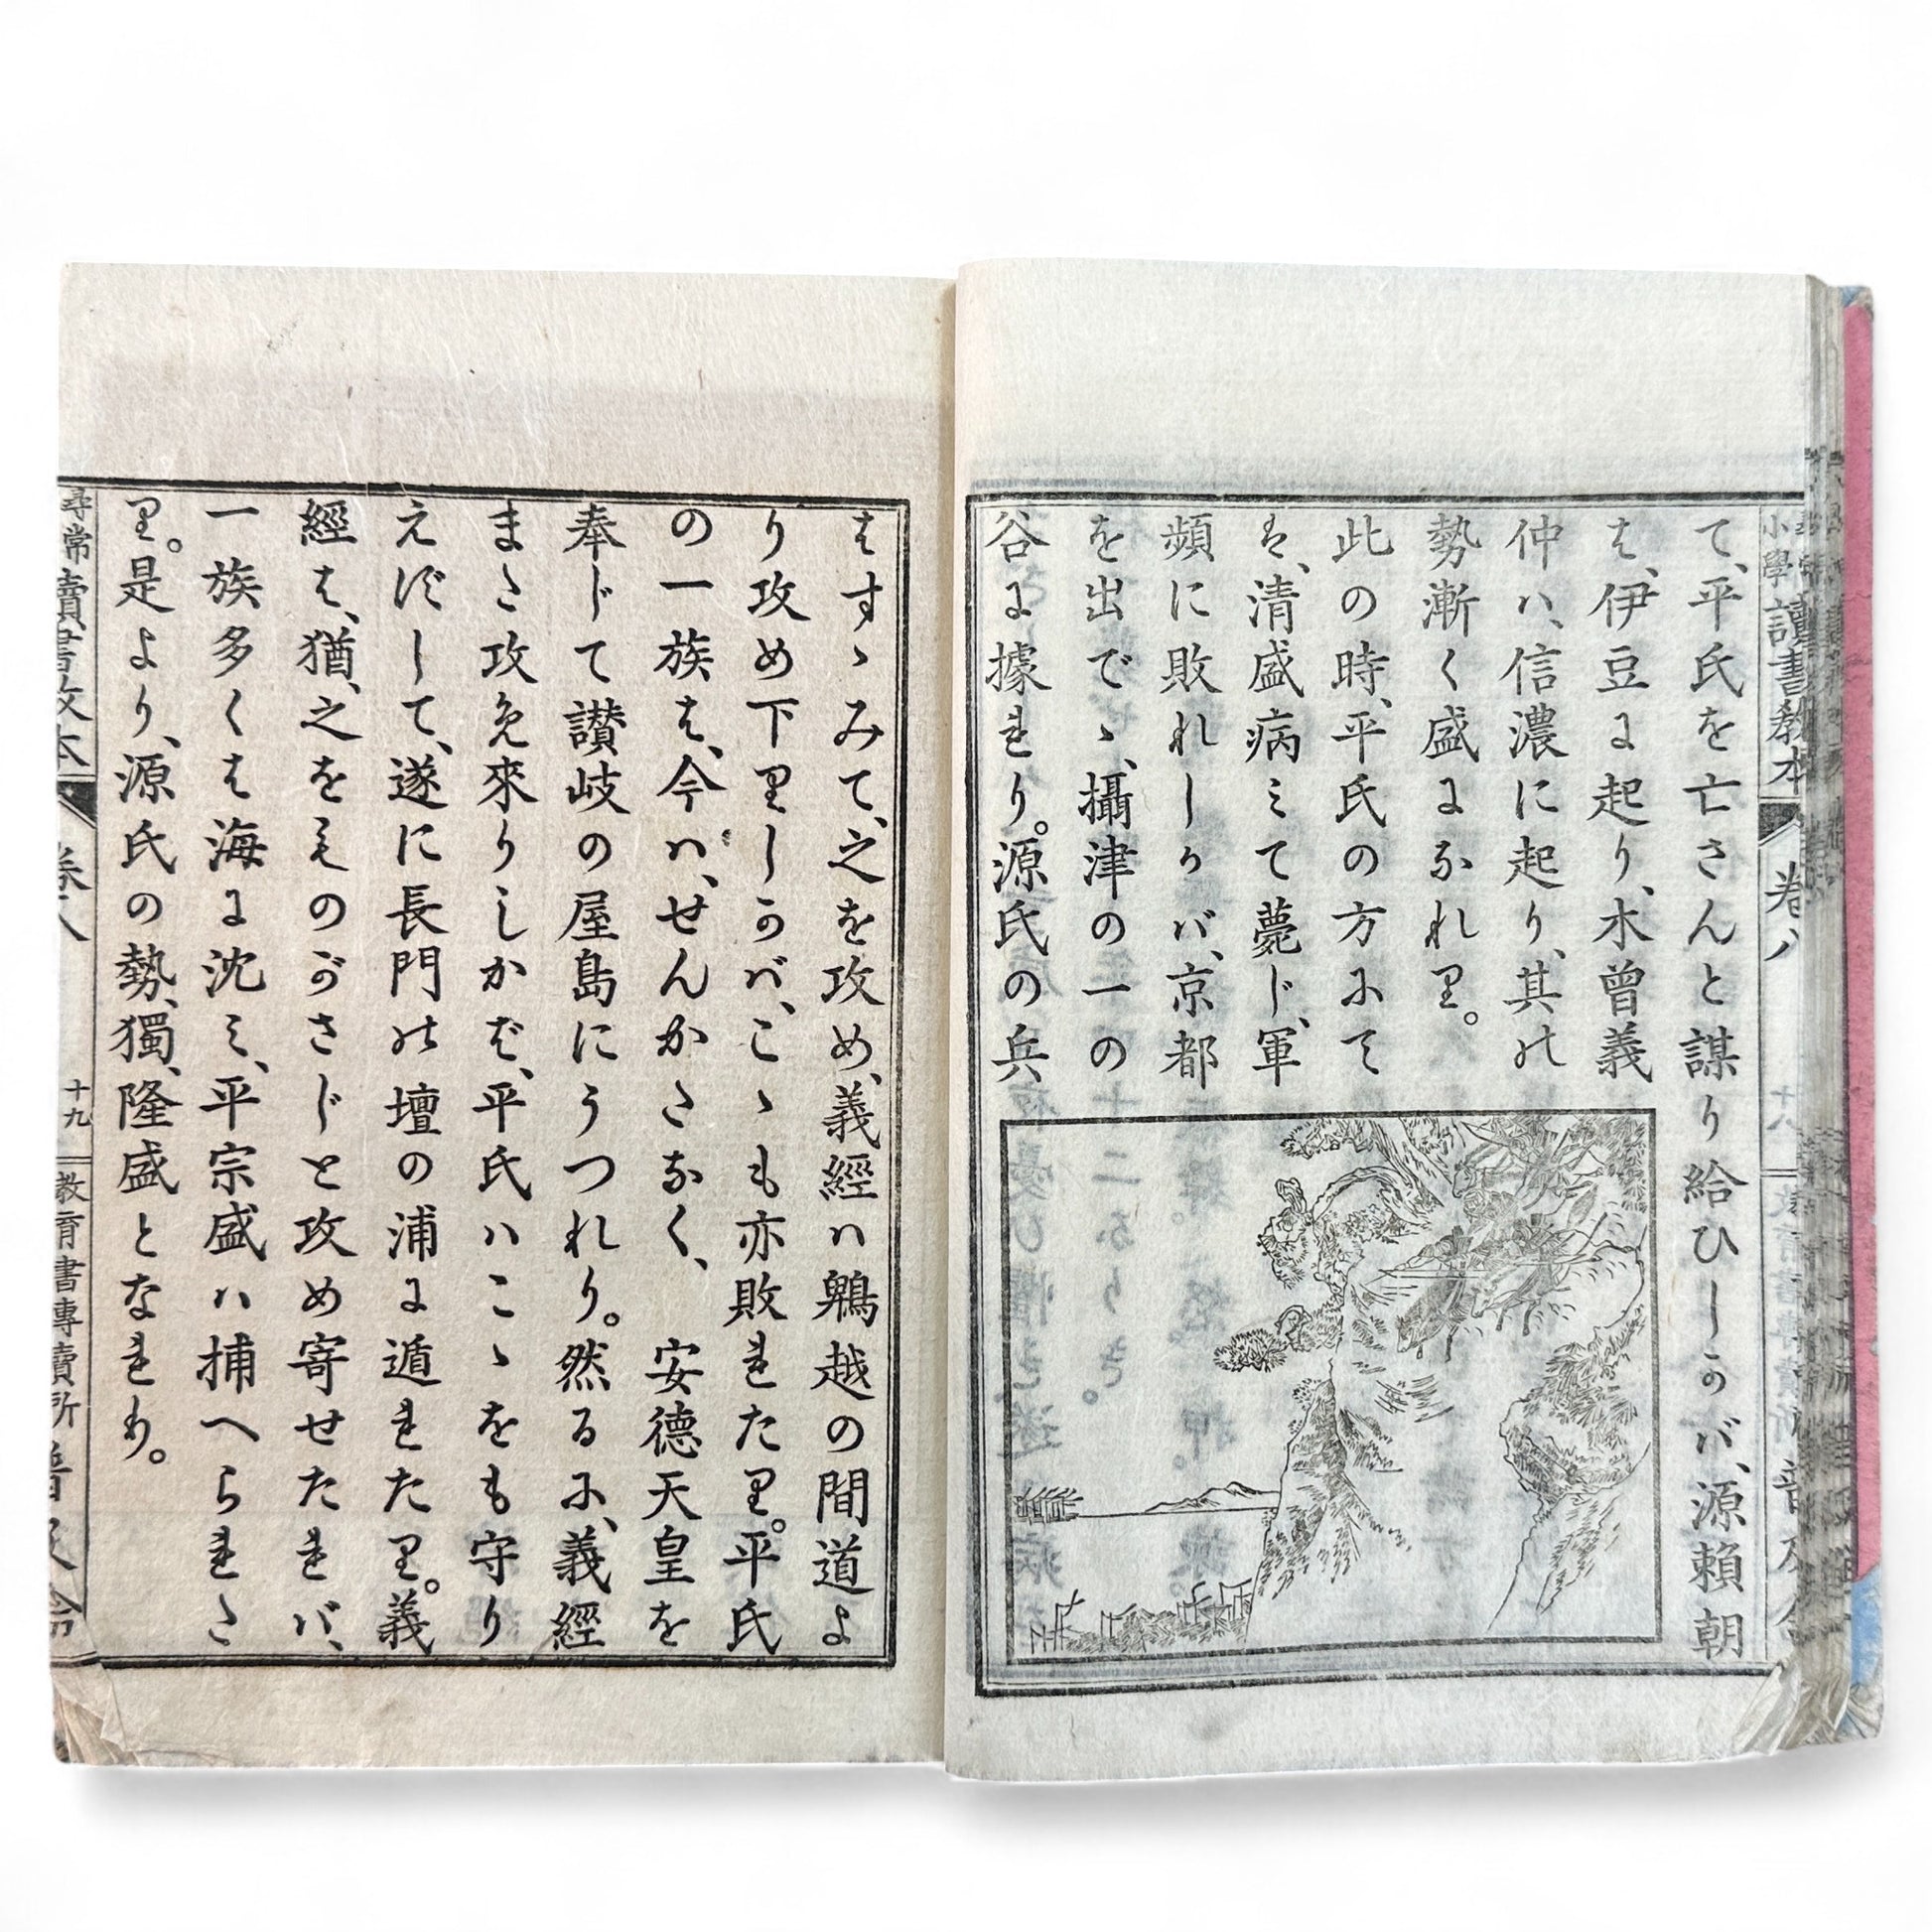 て、平氏を亡さんと謀り給ひしかバ、源賴朝
は、伊豆に起り、木曾義
仲ハ、信濃に起り、其の
勢漸く盛になれり。
此の時、平氏の方にて
は、清盛病みて薨じ、軍
頻に敗れしかバ、京都
を出でゝ、攝津の一の
谷に據れり。源氏の兵
はすゝみて、之を攻め、義經ハ鵯越の間道よ
り攻め下りしかバ、こゝも亦敗れたり。平氏
の一族は、今ハ、せんかたなく、安德天皇を
奉じて讃岐の屋島にうつれり。然るに、義經
また攻め來りしかば、平氏ハこゝをも守り
えずして、遂に長門の壇の浦に遁れたり。義
經は、猶、之をものがさじと攻め寄せたれバ、
一族多くは海に沈み、平宗盛ハ捕へられた
り。是より、源氏の勢、獨、隆盛となれり。
小學讀書敎本
卷八
尋常讀書敎本
卷八
十九
敎育書專賣所